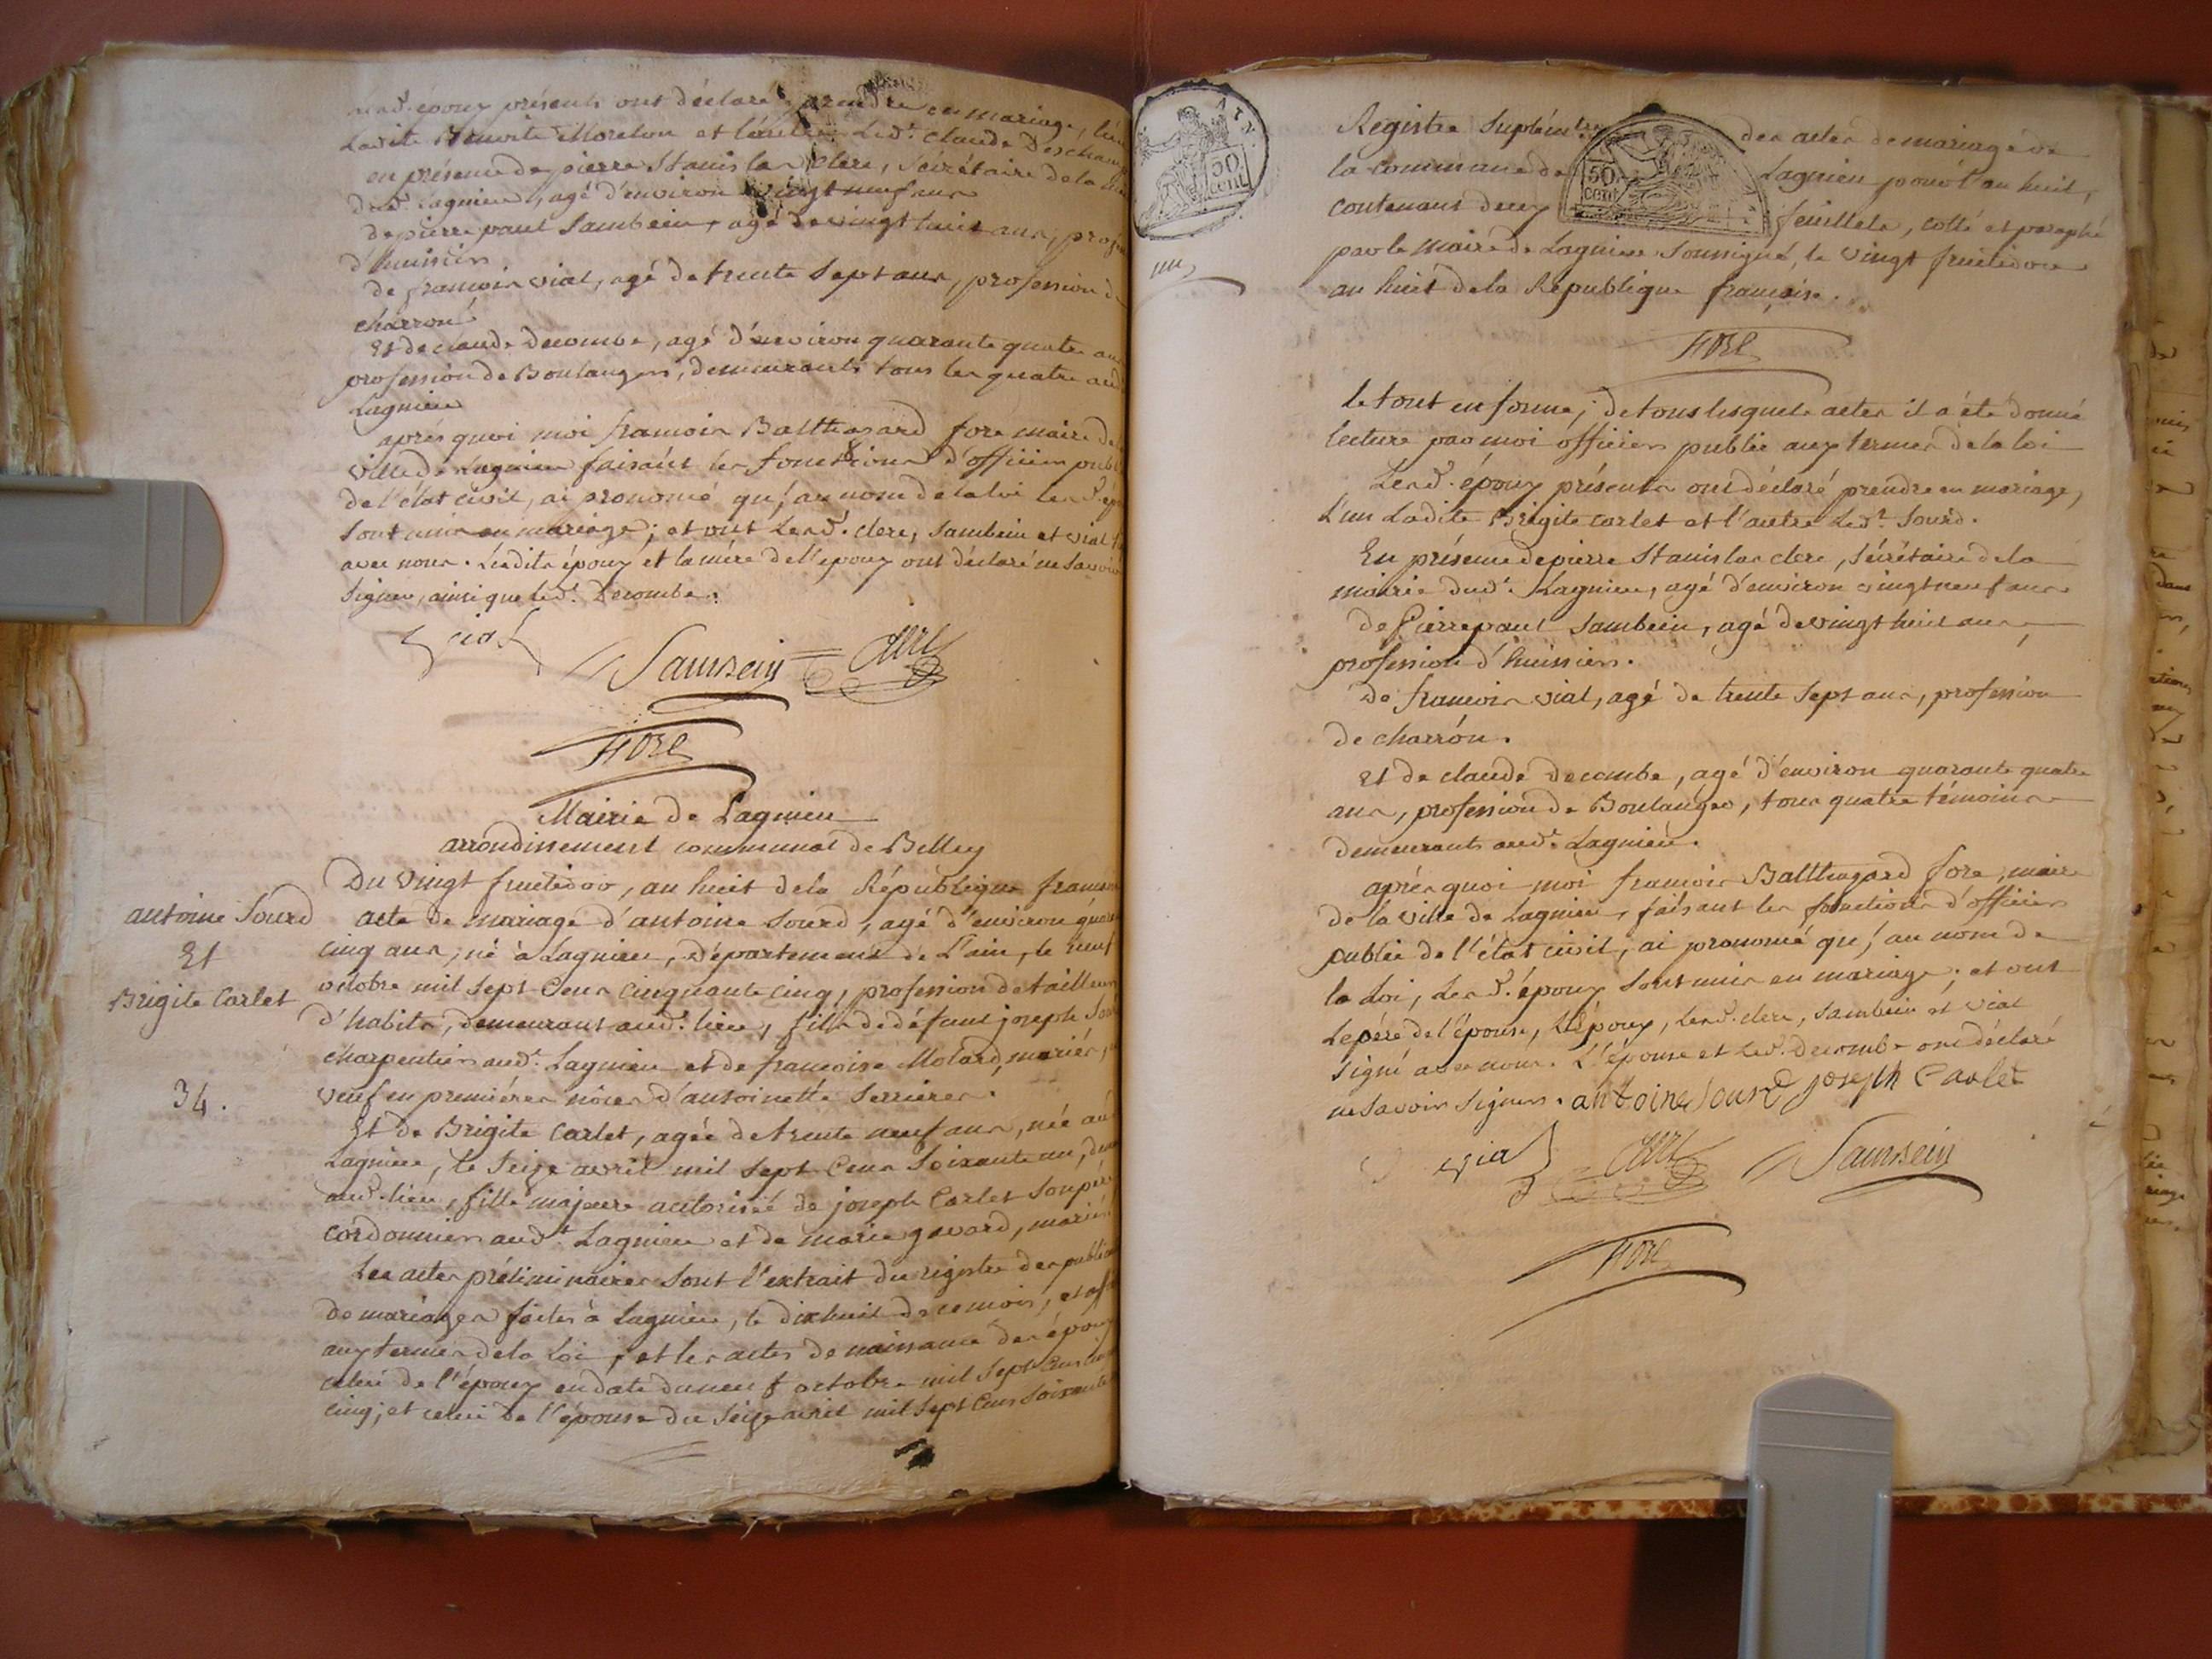 époux présents ont déclaré prendre en mariage,
Ladite Benoite Morelon et l'autre Led.t Claude Descham
en présence de pierre Stanislas Clerc, Secrétaire de la
dud.t Lagnieu, agé d'environ vingt neuf ans
de pierre paul Sambein, agé de vingt huit ans,
d'huissier
de francois vial, agé de trente Sept ans, profession de
charron
Et de claude decombe, agé d'environ quarante quatre ans
profession de Boulanger, demeurants tous les quatre aud.
Lagnieu
aprés quoi moi francois Balthasard fore maire de
ville de Lagnieu faisant les fonctions d'officier publ
de l'état civil, ai prononcé qu'au nom de la loi les d.
Sont unis en mariage; et ont Les d. clerc, Sambein et vial
avec nous. Lesdits époux et la mére de l'epoux ont déclaré ne Savoir
Signer, ainsi que led.t Decombe.
Vial Sambein Clerc
Fore
Mairie de Lagnieu
arrondissement communal de Belley
Du vingt fructidor, an huit de la République francaise
antoine Sourd
Et
Brigite Carlet
34.
acte de mariage d'antoine Sourd, agé d'environ quarante
cinq ans, né à Lagnieu, Département de L'ain, le neuf
octobre mil Sept Cens Cinquante cinq, profession de tailleur
d'habits, demeurant aud.t lieu, fils de défunt joseph Sourd
charpentier aud.t Lagnieu et de francoise Molard, mariés,
veuf en premiéres nôces d'antoinette Serrieres.
Et de Brigite Carlet, agée de trente neuf ans, née aud.
Lagnieu, le Seize avril mil Sept Cens Soixante un,
aud.t lieu, fille majeure autorisée de joseph Carlet Son pére
cordonnier aud.t Lagnieu et de marie gavard, mariés
Les actes préliminaires Sont l'extrait du registre des publica
de mariages faites à Lagnieu, le dix huit de ce mois, et aff
aux termes de la Loi, et les actes de naissance des époux
celui de l'époux en date du neuf octobre mil Sept Cens
cinq; et celui de l'épouse du Seize avril mil Sept Cens Soixante
AIN
50
cent
un
Registre Suplém.re des actes de mariage de
la commune de Lagnieu pour l'an huit,
50
cent
contenant deux feuillets, cotté et paraphé
par le maire de Lagnieu Soussigné, le vingt fructidor
an huit de la République francaise.
Fore
le tout en forme; de tous lesquels actes il a été donné
lecture par moi officier public aux termes de la loi
Les d. époux présents ont déclaré prendre en mariage,
L'un Ladite Brigite Carlet et l'autre Led.t Sourd.
En présence de pierre Stanislas clerc, Sécrétaire de la
mairie dud.t Lagnieu, agé d'environ vingt neuf ans
de Pierre paul Sambein, agé de vingt huit ans,
profession d'huissier.
de francois vial, agé de trente Sept ans, profession
de charron.
Et de claude decombe, agé d'environ quarante quatre
ans, profession de Boulanger, tous quatre témoins
demeurants aud.t Lagnieu.
aprés quoi moi francois Balthazard fore, maire
de la ville de Lagnieu, faisant les fonctions d'officier
public de l'état civil, ai prononcé qu'au nom de
la Loi, Les d. époux Sont unis en mariage; et ont
Le pére de l'épouse, L'époux, Les d. clerc, Sambein et vial
Signé avec nous. L'épouse et led. decombe ont déclaré
ne Savoir Signer. antoine Sourd joseph Carlet
Vial Clerc Sambein
Fore